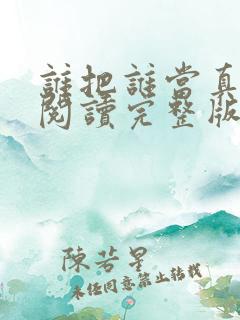 誰把誰當真
閱讀完整版
陳若星
未經同意禁止轉載